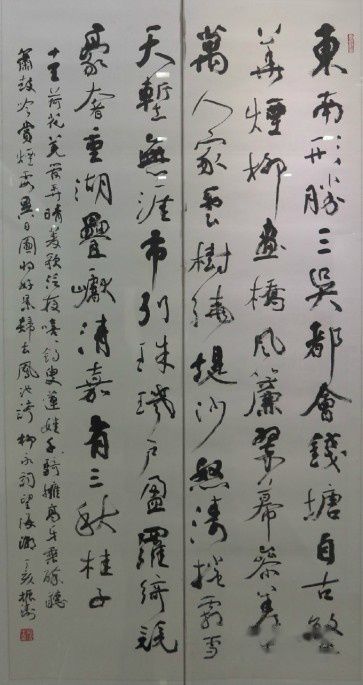 東南形勝三吳都會錢塘自古繁
華煙柳畫橋風簾翠幕參差十
萬人家雲樹繞堤沙怒濤捲霜雪
天塹無涯市列珠璣戶盈羅綺競
豪奢重湖疊巘清嘉有三秋桂子
十里荷花羌管弄晴菱歌泛夜嘻嘻釣叟蓮娃千騎擁高牙乘醉聽
簫鼓吟賞煙霞異日圖將好景歸去鳳池誇柳永詞望海潮丁亥